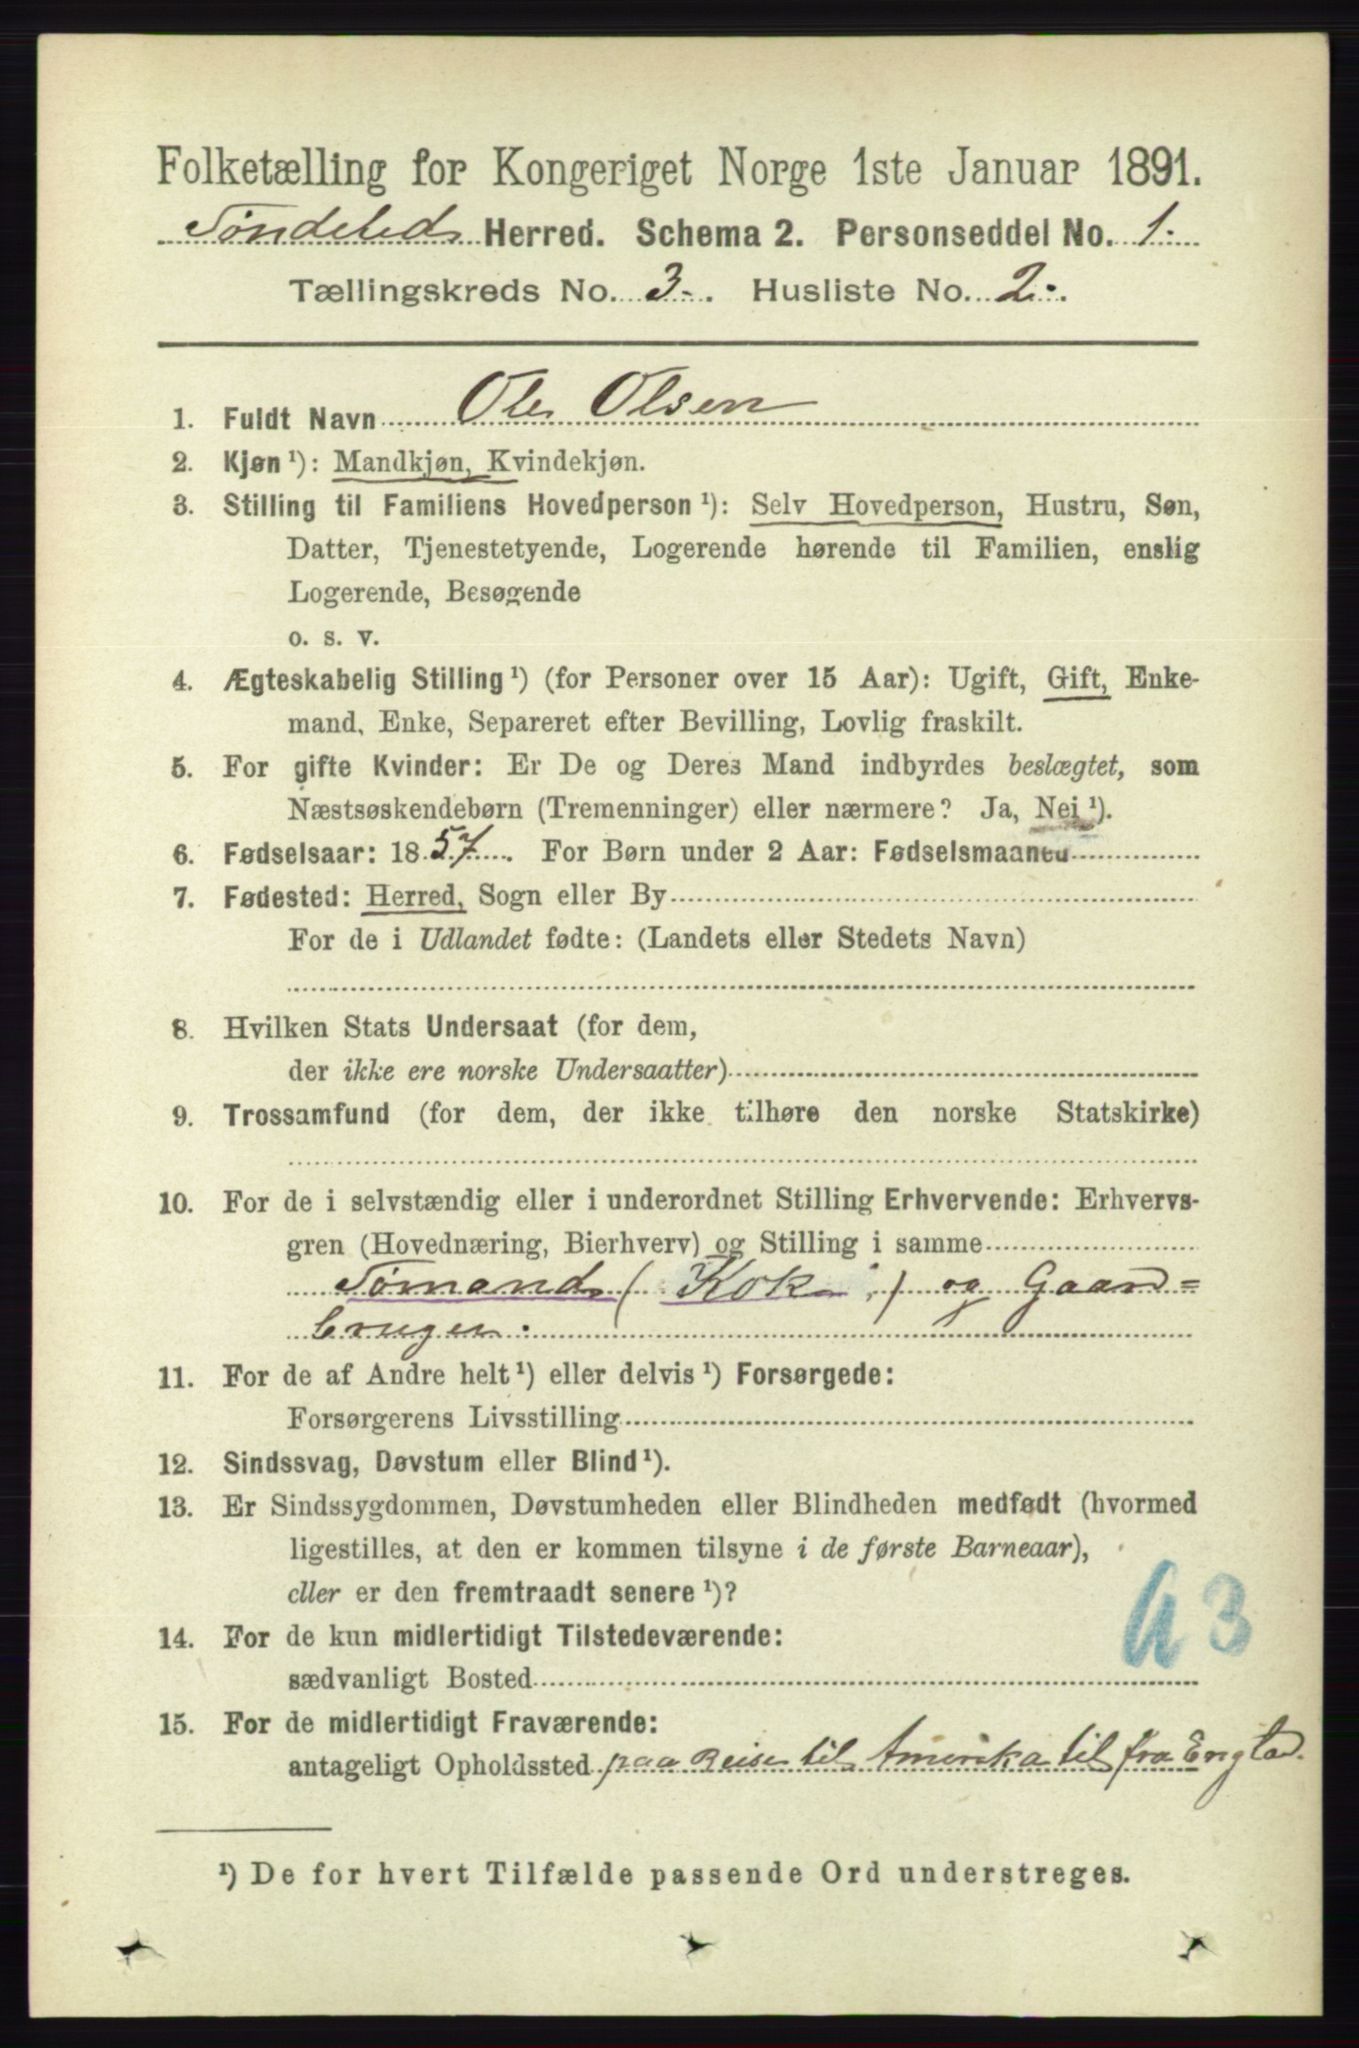 Folketælling for Kongeriget Norge 1ste Januar 1891.
Søndeled Herred. Schema 2. Personseddel No. 1.
Tællingskreds No. 3. Husliste No. 2.
1. Fuldt Navn Ole Olsen
2. Kjøn ¹): Mandkjøn, Kvindekjøn.
3. Stilling til Familiens Hovedperson ¹): Selv Hovedperson, Hustru, Søn,
Datter, Tjenestetyende, Logerende hørende til Familien, enslig
Logerende, Besøgende
o. s. v.
4. Ægteskabelig Stilling ¹) (for Personer over 15 Aar): Ugift, Gift, Enke-
mand, Enke, Separeret efter Bevilling, Lovlig fraskilt.
5. For gifte Kvinder: Er De og Deres Mand indbyrdes beslægtet, som
Næstsøskendebørn (Tremenninger) eller nærmere? Ja, Nei ¹).
6. Fødselsaar: 1857. For Børn under 2 Aar: Fødselsmaaned
7. Fødested: Herred, Sogn eller By
For de i Udlandet fødte: (Landets eller Stedets Navn)
8. Hvilken Stats Undersaat (for dem,
der ikke ere norske Undersaatter)
9. Trossamfund (for dem, der ikke tilhøre den norske Statskirke)
10. For de i selvstændig eller i underordnet Stilling Erhvervende: Erhvervs-
gren (Hovednæring, Bierhverv) og Stilling i samme
Sømand (Kok) og Gaard=
bruger.
11. For de af Andre helt ¹) eller delvis ¹) Forsørgede:
Forsørgerens Livsstilling
12. Sindssvag, Døvstum eller Blind ¹).
13. Er Sindssygdommen, Døvstumheden eller Blindheden medfødt (hvormed
ligestilles, at den er kommen tilsyne i de første Barneaar),
eller er den fremtraadt senere ¹)?
14. For de kun midlertidigt Tilstedeværende:
sædvanligt Bosted
15. For de midlertidigt Fraværende:
antageligt Opholdssted paa Reise til Amerika til fra England.
¹) De for hvert Tilfælde passende Ord understreges.